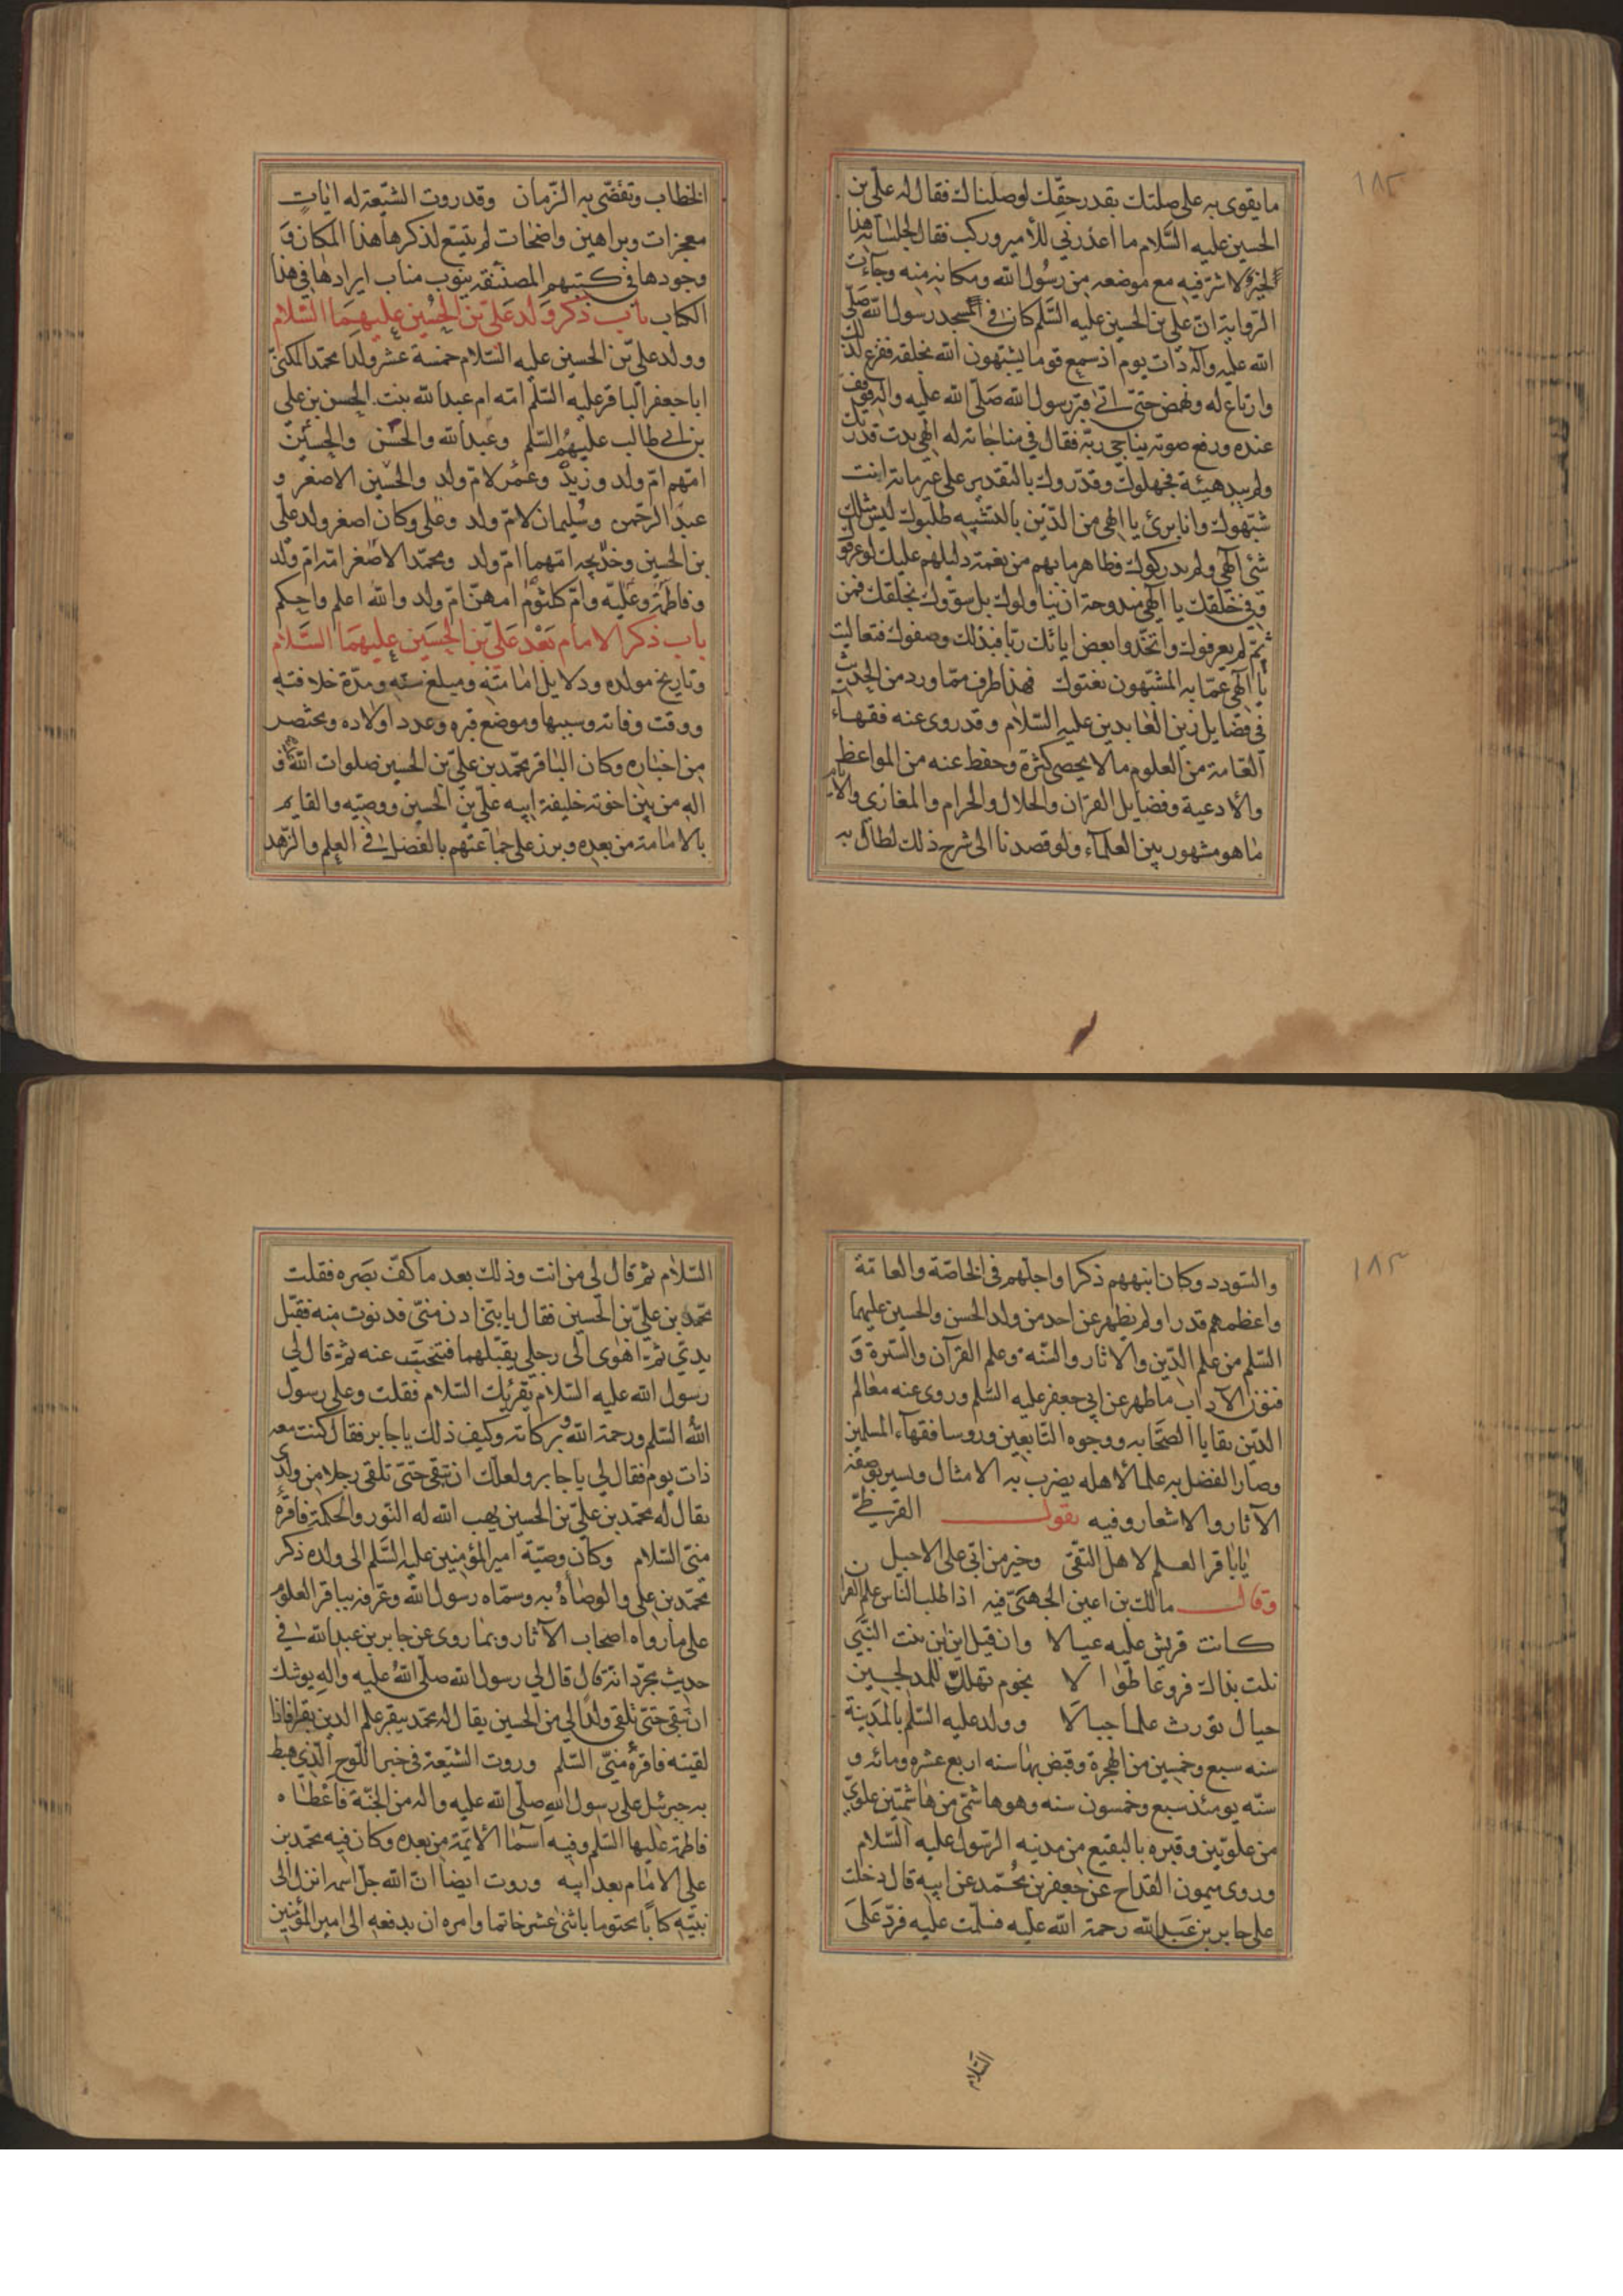 ١٨٢
ما يقوى به على صلتك بقدر حقك لوصلناك فقال له على بن
الحسين عليه السلام ما اعذرني للأمير وركب فقال لجلسائه هذا
الخير لا شر فيه مع موضعه من رسول الله ومكانه منه وجاءت
الرواية ان على بن الحسين عليه السلم كان في مسجد رسول الله صلى
الله عليه وآله ذات يوم اذ سمع قوما يشبهون الله بخلقه ففزع لذلك
وارتاع له ونهض حتى اتى قبر رسول الله صلى الله عليه واله فوقف
عنده ورفع صوته يناجي ربه فقال في مناجاته له الهي بدت قدرتك
ولم يبد هيئة فجهلوك وقدروك بالتقدير على غير ما به انت
شبهوك وانا برئ يا الهي من الذين بالتشبيه طلبوك ليس مثلك
شئ الهي ولم يدركوك وظاهر ما بهم من نعمة دليلهم عليك لو عرفوك
وفي خلقك يا الهي مندوحة ان يناولوك بل سووك بخلقك فمن
ثم لم يعرفوك واتخذوا بعض اياتك ربا فبذلك وصفوك فتعاليت
يا الهي عما به المشبهون نعتوك فهذا طرف مما ورد من الحديث
في فضايل زين العابدين عليه السلام وقد روى عنه فقهاء
العامة من العلوم ما لا يحصى كثرة وحفظ عنه من المواعظ
والادعية وفضايل القران والحلال والحرام والمغازي والايام
ما هو مشهور بين العلماء ولو قصدنا الى شرح ذلك لطال به
الخطاب وتقضى به الزمان وقد روت الشيعة له ايات
معجزات وبراهين واضحات لم يتسع لذكرها هذا المكان و
وجودها في كتبهم المصنفة ينوب مناب ايرادها في هذا
الكتاب باب ذكر ولد على بن الحسين عليهما السلام
وولد على بن الحسين عليه السلام خمسة عشر ولدا محمد المكنى
ابا جعفر الباقر عليه السلم امه ام عبد الله بنت الحسن بن على
بن ابي طالب عليهم السلم وعبد الله والحسن والحسين
امهم ام ولد وزيد وعمر لام ولد والحسين الاصغر و
عبد الرحمن وسليمان لام ولد وعلى وكان اصغر ولد على
بن الحسين وخديجه امهما ام ولد ومحمد الاصغر امه ام ولد
وفاطمة وعليه وام كلثوم امهن ام ولد والله اعلم واحكم
باب ذكر الامام بعد على بن الحسين عليهما السلام
وتاريخ مولده ودلايل امامته ومبلغ سنه ومدة خلافته
ووقت وفاته وسببها وموضع قبره وعدد اولاده ومختصر
من اخباره وكان الباقر محمد بن على بن الحسين صلوات الله عليه و
اله من بين اخوته خليفة ابيه على بن الحسين ووصيه والقايم
بالامامة من بعده وبرز على جماعتهم بالفضل في العلم والزهد
١٨٣
والسودد وكان انبههم ذكرا واجلهم في الخاصة والعامة
واعظمهم قدرا ولم يظهر عن احد من ولد الحسن والحسين عليهما
السلم من علم الدين والاثار والسنه وعلم القرآن والسيرة و
فنون الآداب ما ظهر عن ابي جعفر عليه السلم وروى عنه معالم
الدين بقايا الصحابه ووجوه التابعين وروسا فقهاء المسلمين
وصار الفضل به علما لاهله يضرب به الامثال ويسير بوصفه
الآثار والاشعار وفيه يقول القرظي
يا باقر العلم لاهل التقى وخير من لبى على الاجبل
وقال مالك بن اعين الجهني فيه اذا طلب الناس علم القران
كانت قريش عليه عيالا وان قيل اين ابن بنت النبي
نلت بذاك فروعا طوالا نجوم تهلل للمدلجين
جبال تورث علما جبالا وولد عليه السلم بالمدينة
سنه سبع وخمسين من الهجرة وقبض بها سنه اربع عشره ومائه و
سنه يومئذ سبع وخمسون سنه وهو هاشمي من هاشميين علوي
من علويين وقبره بالبقيع من مدينه الرسول عليه السلام
وروى ميمون القداح عن جعفر بن محمد عن ابيه قال دخلت
على جابر بن عبد الله رحمة الله عليه فسلمت عليه فرد على
السلام
السلام ثم قال لي من انت وذلك بعد ما كف بصره فقلت
محمد بن على بن الحسين فقال يا بني ادن منى فدنوت منه فقبل
يدي ثم اهوى الى رجلي يقبلهما فتنحيت عنه ثم قال لي
رسول الله عليه السلام يقرئك السلام فقلت وعلى رسول
الله السلم ورحمة الله وبركاته وكيف ذلك يا جابر فقال كنت معه
ذات يوم فقال لي يا جابر ولعلك ان تبقى حتى تلقى رجلا من ولدي
يقال له محمد بن على بن الحسين يهب الله له النور والحكمة فاقره
منى السلام وكان وصية امير المؤمنين عليه السلم الى ولده ذكر
محمد بن على والوصاة به وسماه رسول الله وعرفه بباقر العلوم
على ما رواه اصحاب الآثار وبما روى عن جابر بن عبد الله في
حديث مجرد انه قال قال لي رسول الله صلى الله عليه واله يوشك
ان تبقى حتى تلقى ولدا لي من الحسين يقال له محمد يبقر علم الدين بقرا فاذا
لقيته فاقره منى السلم وروت الشيعة في خبر اللوح الذي هبط
به جبرئيل على رسول الله صلى الله عليه واله من الجنة فاعطاه
فاطمة عليها السلم وفيه اسما الائمة من بعده وكان فيه محمد بن
على الامام بعد ابيه وروت ايضا ان الله جل اسمه انزل الى
نبيه كتابا مختوما باثنى عشر خاتما وامره ان يدفعه الى امير المؤمنين